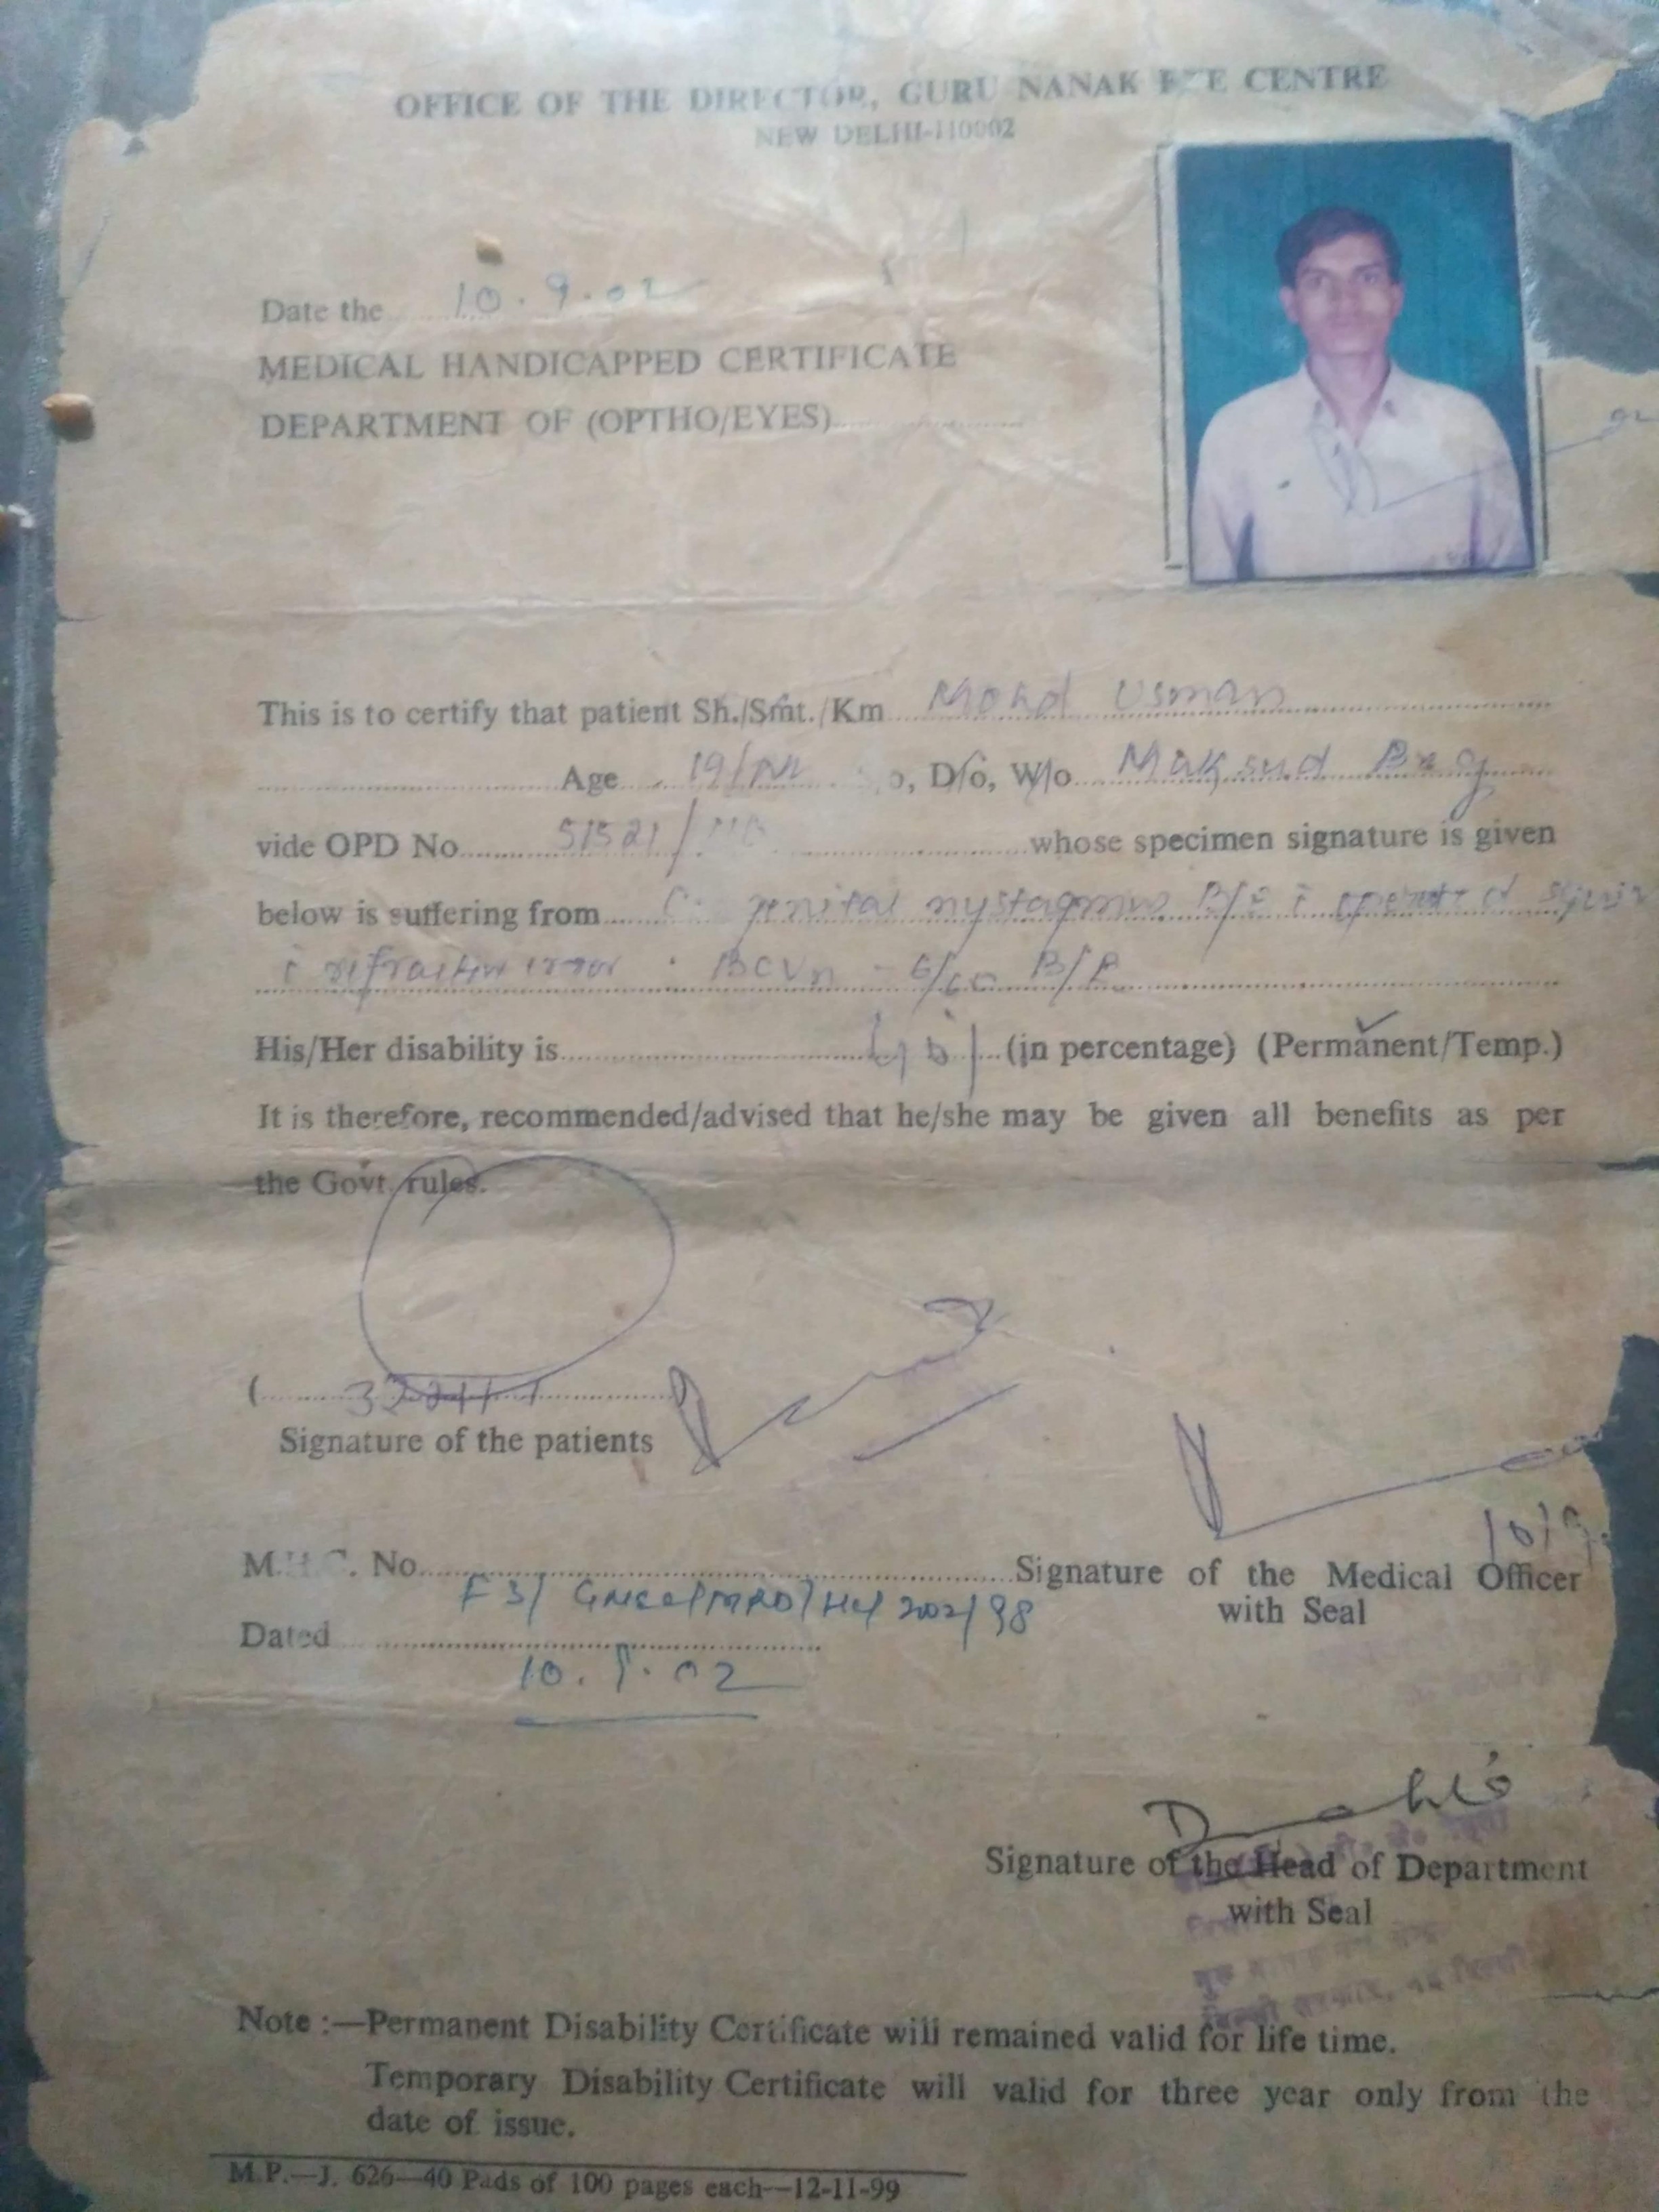 OFFICE OF THE DIRECTOR, GURU NANAK EYE CENTRE
NEW DELHI-110002
Date the 10.9.02
MEDICAL HANDICAPPED CERTIFICATE
DEPARTMENT OF (OPTHO/EYES)
This is to certify that patient Sh./Smt./Km Mohd Usman
Age 19/M D/o, W/o Maksud
vide OPD No 51521/ whose specimen signature is given
below is suffering from genital nystagmus B/E operated
refractive error . BCVn - 6/60 B/E
His/Her disability is (in percentage) (Permanent/Temp.)
It is therefore, recommended/advised that he/she may be given all benefits as per
the Govt. rules.
(
)
Signature of the patients
M.H.C. No. Signature of the Medical Officer
F3/ GNEC/MRD/ 2002/98 with Seal
Dated
10.9.02
Signature of the Head of Department
with Seal
Note :—Permanent Disability Certificate will remained valid for life time.
Temporary Disability Certificate will valid for three year only from the
date of issue.
M.P.—J. 626—40 Pads of 100 pages each—12-11-99